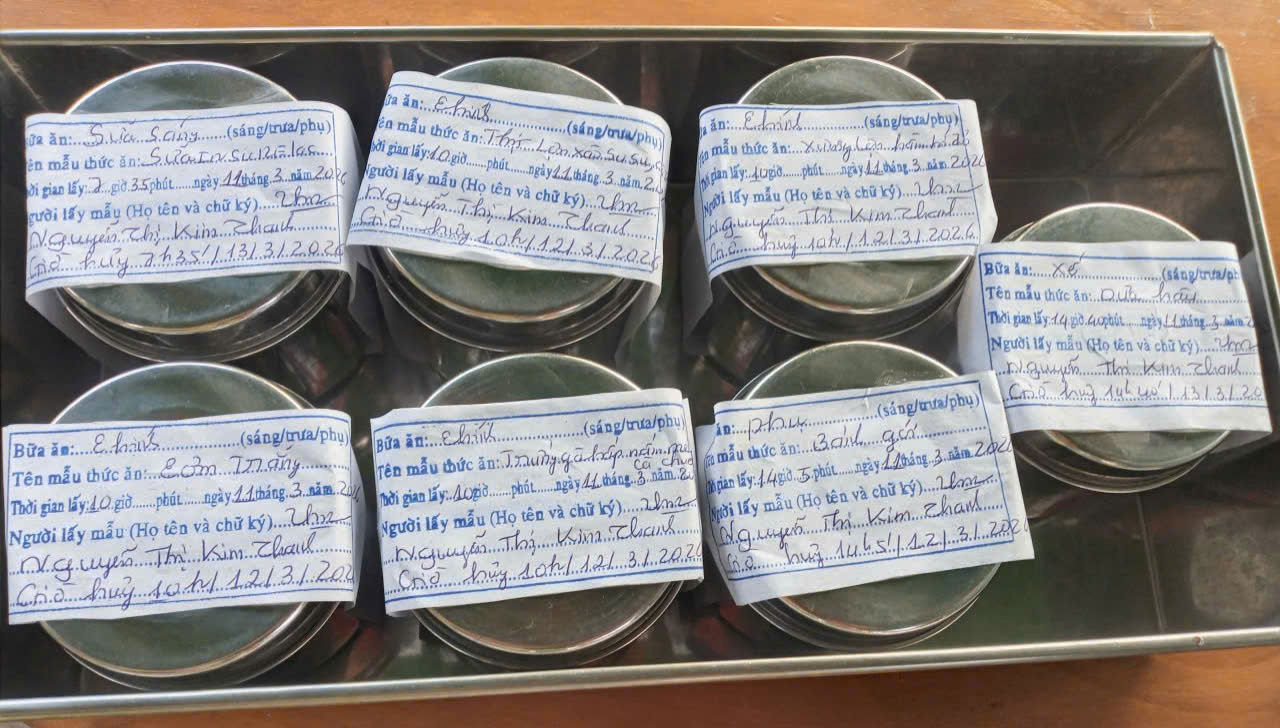 ữa ăn:...Sữa sáng......(sáng/trưa/phụ)
ên mẫu thức ăn: Sữa
ời gian lấy: 7 giờ 35 phút......ngày 11 tháng 3 năm 202
gười lấy mẫu (Họ tên và chữ ký)
Nguyễn Thị Kim Thanh
Giờ hủy 7h35'/13/3/2026
ữa ăn:...Chính......(sáng/trưa/phụ)
ên mẫu thức ăn: Thịt lợn xào su su
ời gian lấy: 10 giờ......phút......ngày 11 tháng 3 năm 20
gười lấy mẫu (Họ tên và chữ ký)
Nguyễn Thị Kim Thanh
Giờ hủy 10h/12/3/2026
a ăn:...Chính......(sáng/trưa/phụ)
n mẫu thức ăn: Xương lợn hầm
ời gian lấy: 10 giờ......phút......ngày 11 tháng 3 năm 202
Người lấy mẫu (Họ tên và chữ ký)
Nguyễn Thị Kim Thanh
Giờ hủy 10h/12/3/2026
Bữa ăn:...Xế......(sáng/trưa/ph
Tên mẫu thức ăn: Dưa hấu
Thời gian lấy: 14 giờ 40 phút......ngày 11 tháng 3 năm 2
Người lấy mẫu (Họ tên và chữ ký)
Nguyễn Thị Kim Thanh
Giờ hủy 14h40'/13/3/20
Bữa ăn:...Chính......(sáng/trưa/phụ)
Tên mẫu thức ăn: Cơm Trắng
Thời gian lấy: 10 giờ......phút......ngày 11 tháng 3 năm 20
Người lấy mẫu (Họ tên và chữ ký)
Nguyễn Thị Kim Thanh
Giờ hủy 10h/12/3/202
Bữa ăn:...Chính......(sáng/trưa/phụ)
Tên mẫu thức ăn: Trứng gà hấp nấm
Thời gian lấy: 10 giờ......phút......ngày 11 tháng 3 năm 20
Người lấy mẫu (Họ tên và chữ ký)
Nguyễn Thị Kim Thanh
Giờ hủy 10h/12/3/202
ăn:...phụ......(sáng/trưa/phụ)
n mẫu thức ăn: Bánh gói
ời gian lấy: 14 giờ 5 phút......ngày 11 tháng 3 năm 202
Người lấy mẫu (Họ tên và chữ ký)
Nguyễn Thị Kim Thanh
Giờ hủy 14h5'/12/3/202